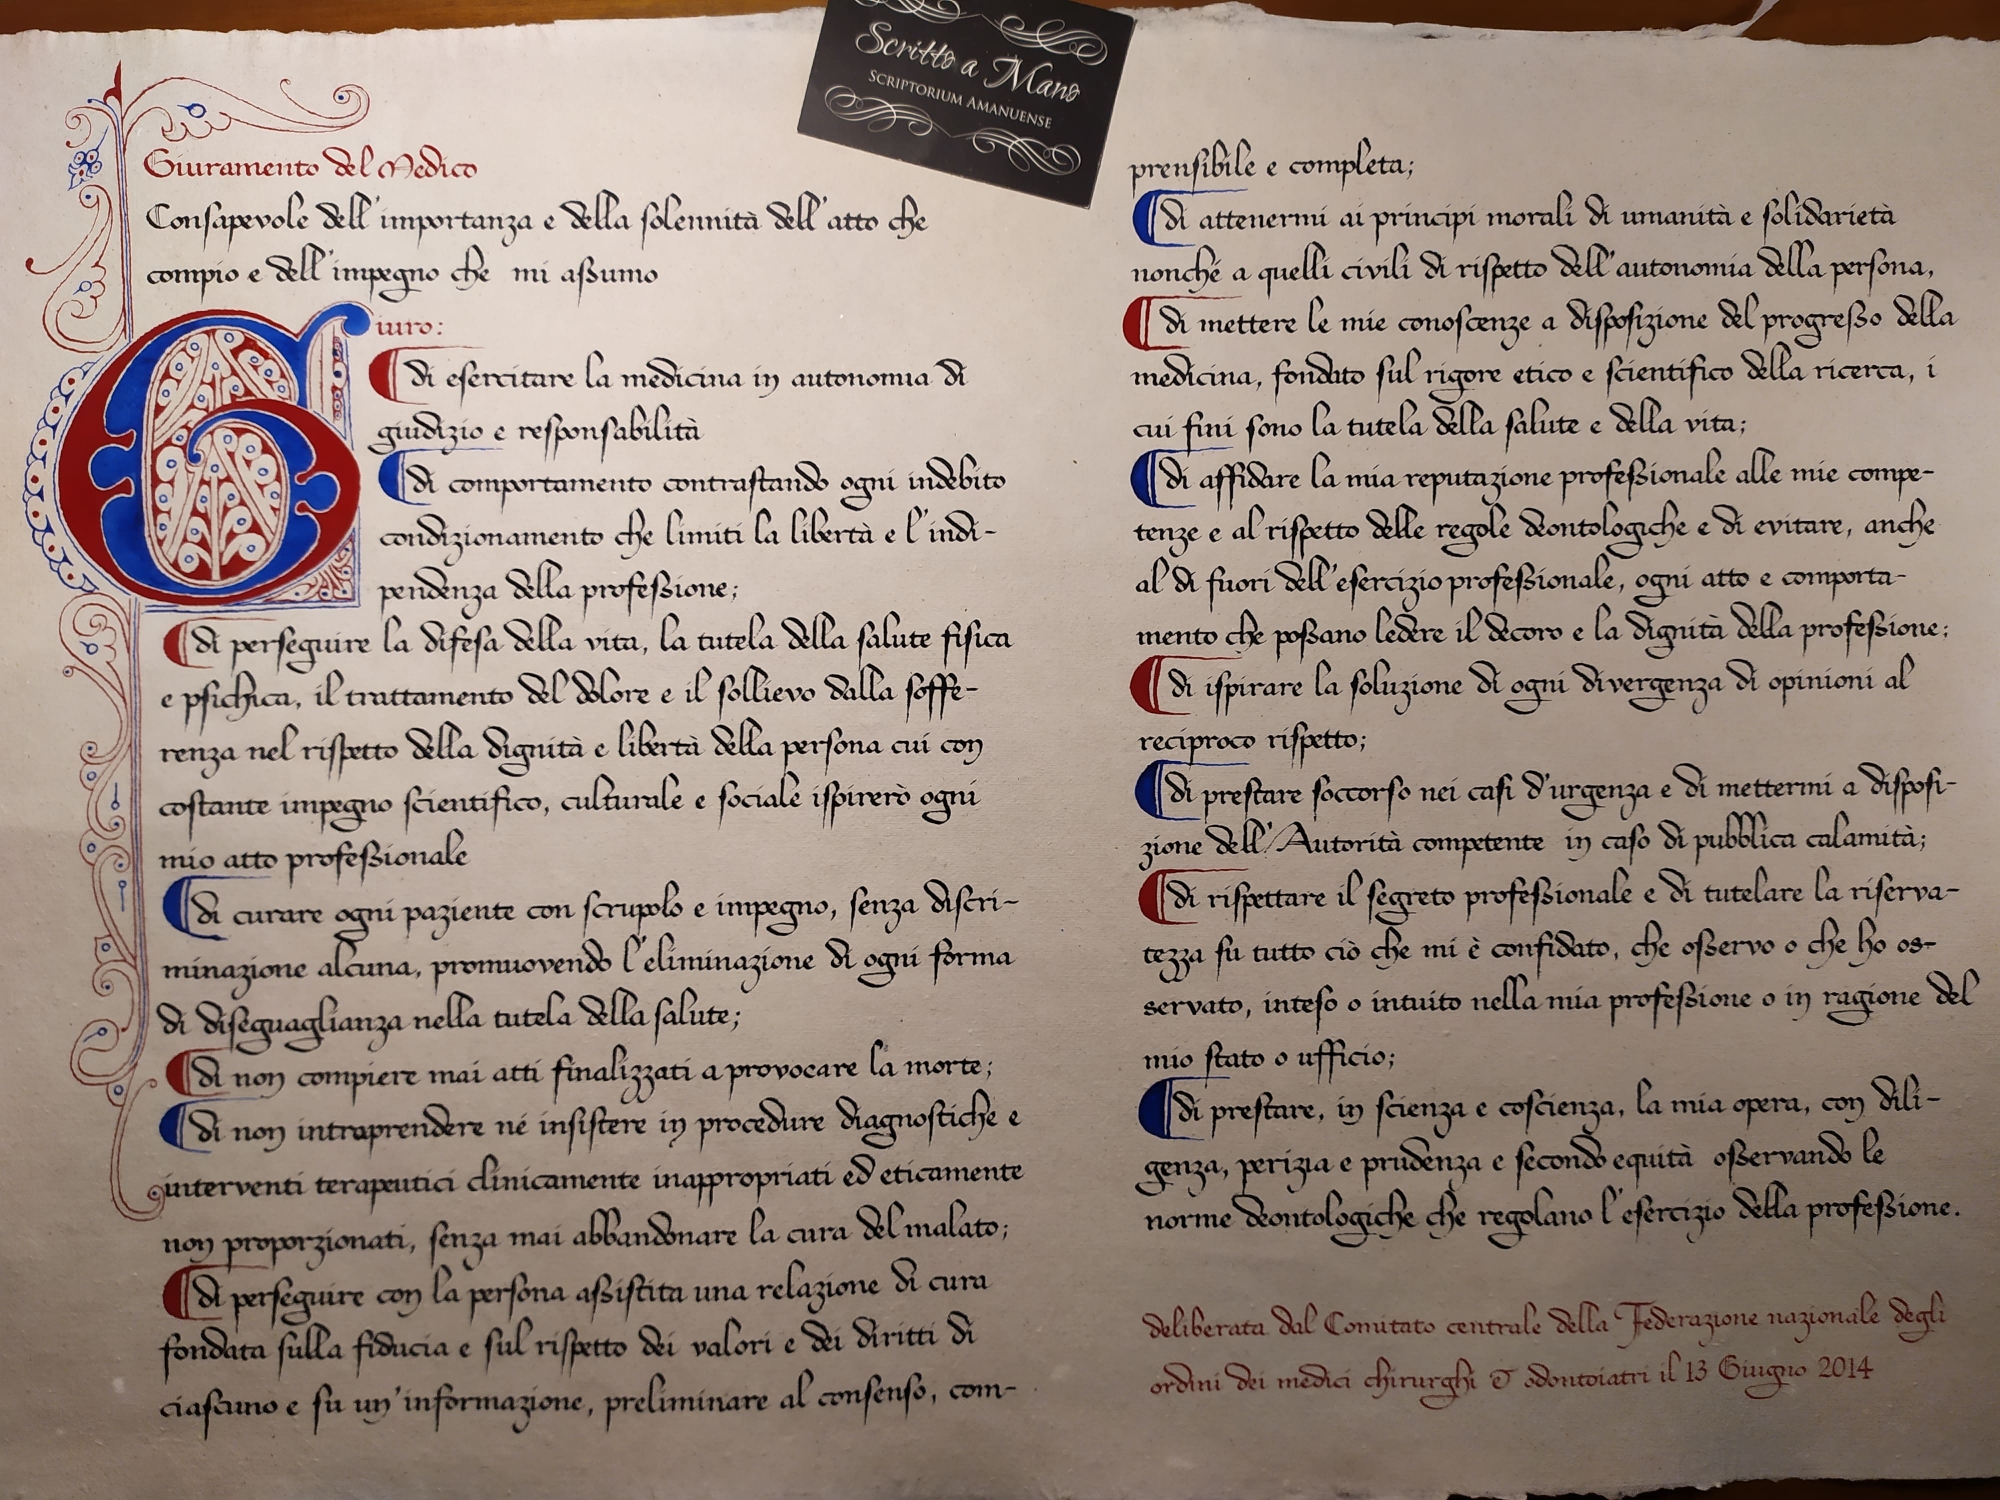 Scritto a Mano
SCRIPTORIUM AMANUENSE
Giuramento del Medico
Consapevole dell'importanza e della solennità dell'atto che
compio e dell'impegno che mi assumo
Giuro:
di esercitare la medicina in autonomia di
giudizio e responsabilità
di comportamento contrastando ogni indebito
condizionamento che limiti la libertà e l'indi-
pendenza della professione;
di perseguire la difesa della vita, la tutela della salute fisica
e psichica, il trattamento del dolore e il sollievo dalla soffe-
renza nel rispetto della dignità e libertà della persona cui con
costante impegno scientifico, culturale e sociale ispirerò ogni
mio atto professionale
di curare ogni paziente con scrupolo e impegno, senza discri-
minazione alcuna, promuovendo l'eliminazione di ogni forma
di diseguaglianza nella tutela della salute;
di non compiere mai atti finalizzati a provocare la morte;
di non intraprendere né insistere in procedure diagnostiche e
interventi terapeutici clinicamente inappropriati ed eticamente
non proporzionati, senza mai abbandonare la cura del malato;
di perseguire con la persona assistita una relazione di cura
fondata sulla fiducia e sul rispetto dei valori e dei diritti di
ciascuno e su un'informazione, preliminare al consenso, com-
prensibile e completa;
di attenermi ai principi morali di umanità e solidarietà
nonché a quelli civili di rispetto dell'autonomia della persona,
di mettere le mie conoscenze a disposizione del progresso della
medicina, fondato sul rigore etico e scientifico della ricerca, i
cui fini sono la tutela della salute e della vita;
di affidare la mia reputazione professionale alle mie compe-
tenze e al rispetto delle regole deontologiche e di evitare, anche
al di fuori dell'esercizio professionale, ogni atto e comporta-
mento che possano ledere il decoro e la dignità della professione;
di ispirare la soluzione di ogni divergenza di opinioni al
reciproco rispetto;
di prestare soccorso nei casi d'urgenza e di mettermi a disposi-
zione dell'Autorità competente in caso di pubblica calamità;
di rispettare il segreto professionale e di tutelare la riserva-
tezza su tutto ciò che mi è confidato, che osservo o che ho os-
servato, inteso o intuito nella mia professione o in ragione del
mio stato o ufficio;
di prestare, in scienza e coscienza, la mia opera, con dili-
genza, perizia e prudenza e secondo equità osservando le
norme deontologiche che regolano l'esercizio della professione.
deliberata dal Comitato centrale della Federazione nazionale degli
ordini dei medici chirurghi & odontoiatri il 13 Giugno 2014